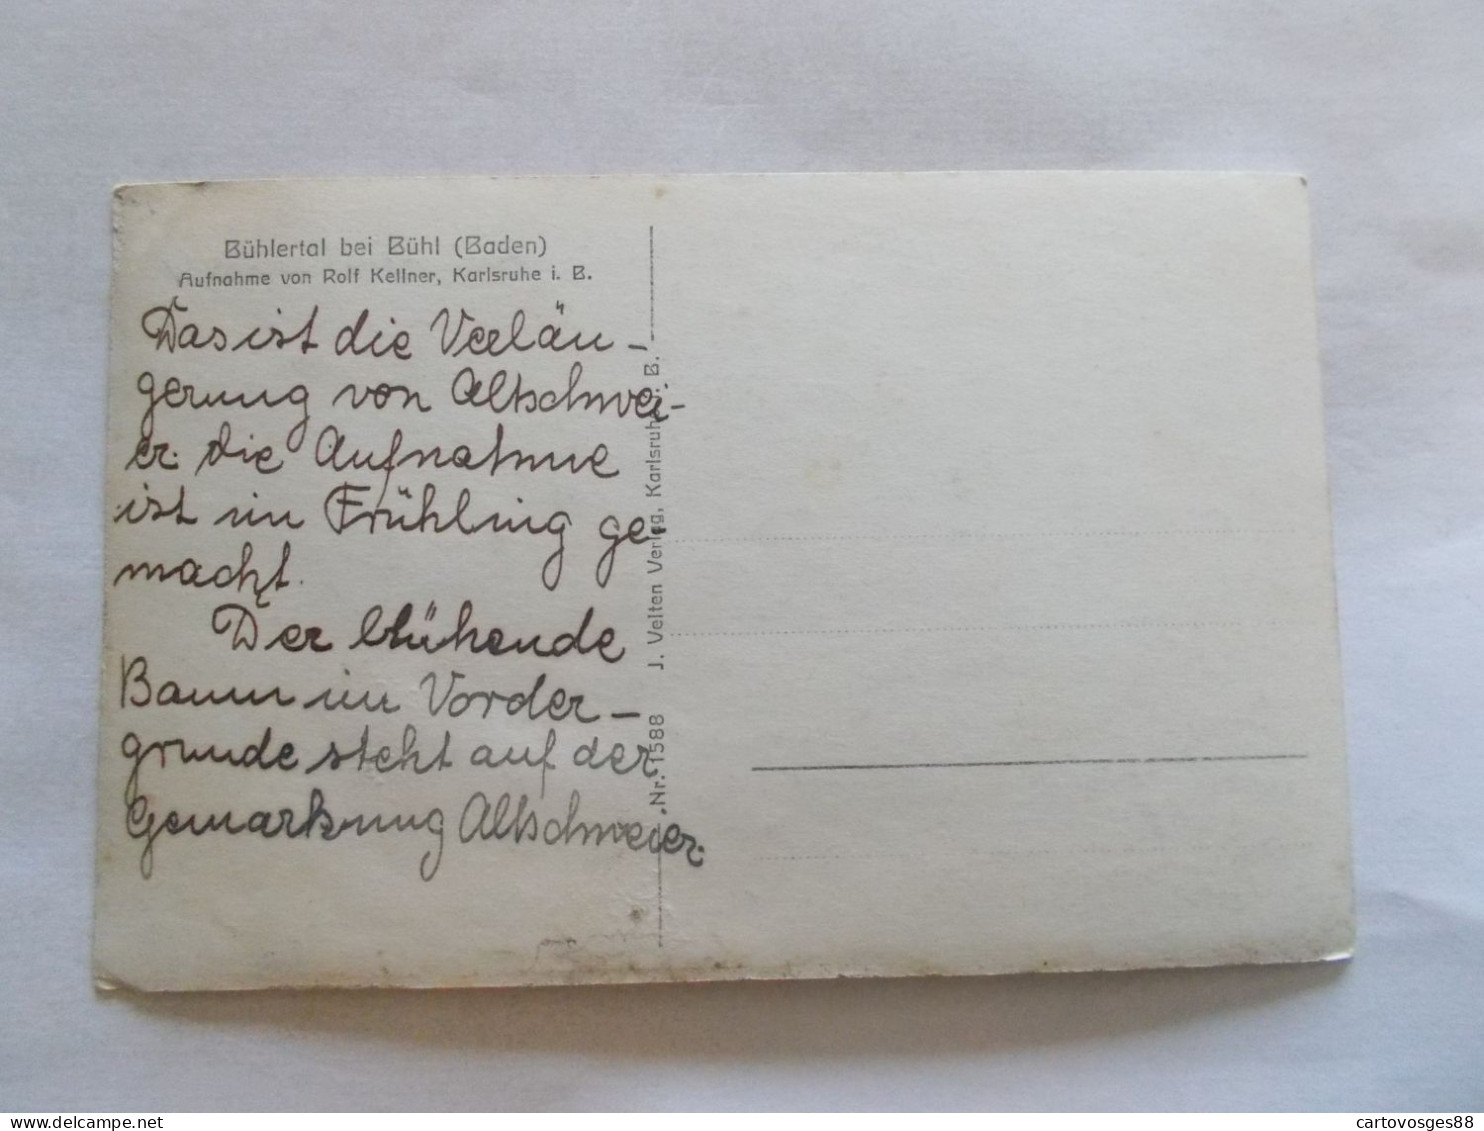 Bühlertal bei Bühl (Baden)
Aufnahme von Rolf Kellner, Karlsruhe i. B.
Das ist die Verlän-
gerung von Altschwei-
er. die Aufnahme
ist im Frühling ge-
macht.
Der blühende
Baum im Vorder-
grunde steht auf der
Gemarkung Altschweier.
Nr. 1588 J. Velten Verlag, Karlsruhe i. B.
cartovosges88